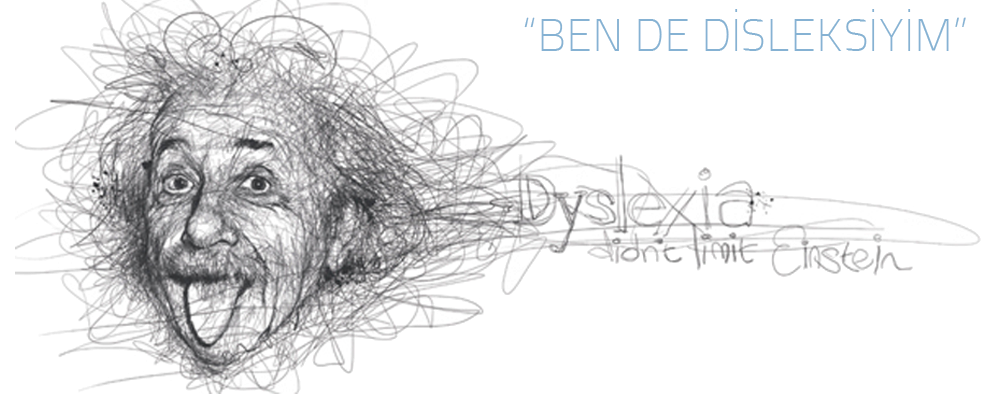 “BEN DE DİSLEKSİYİM”
Dyslexia
didnt limit Einstein